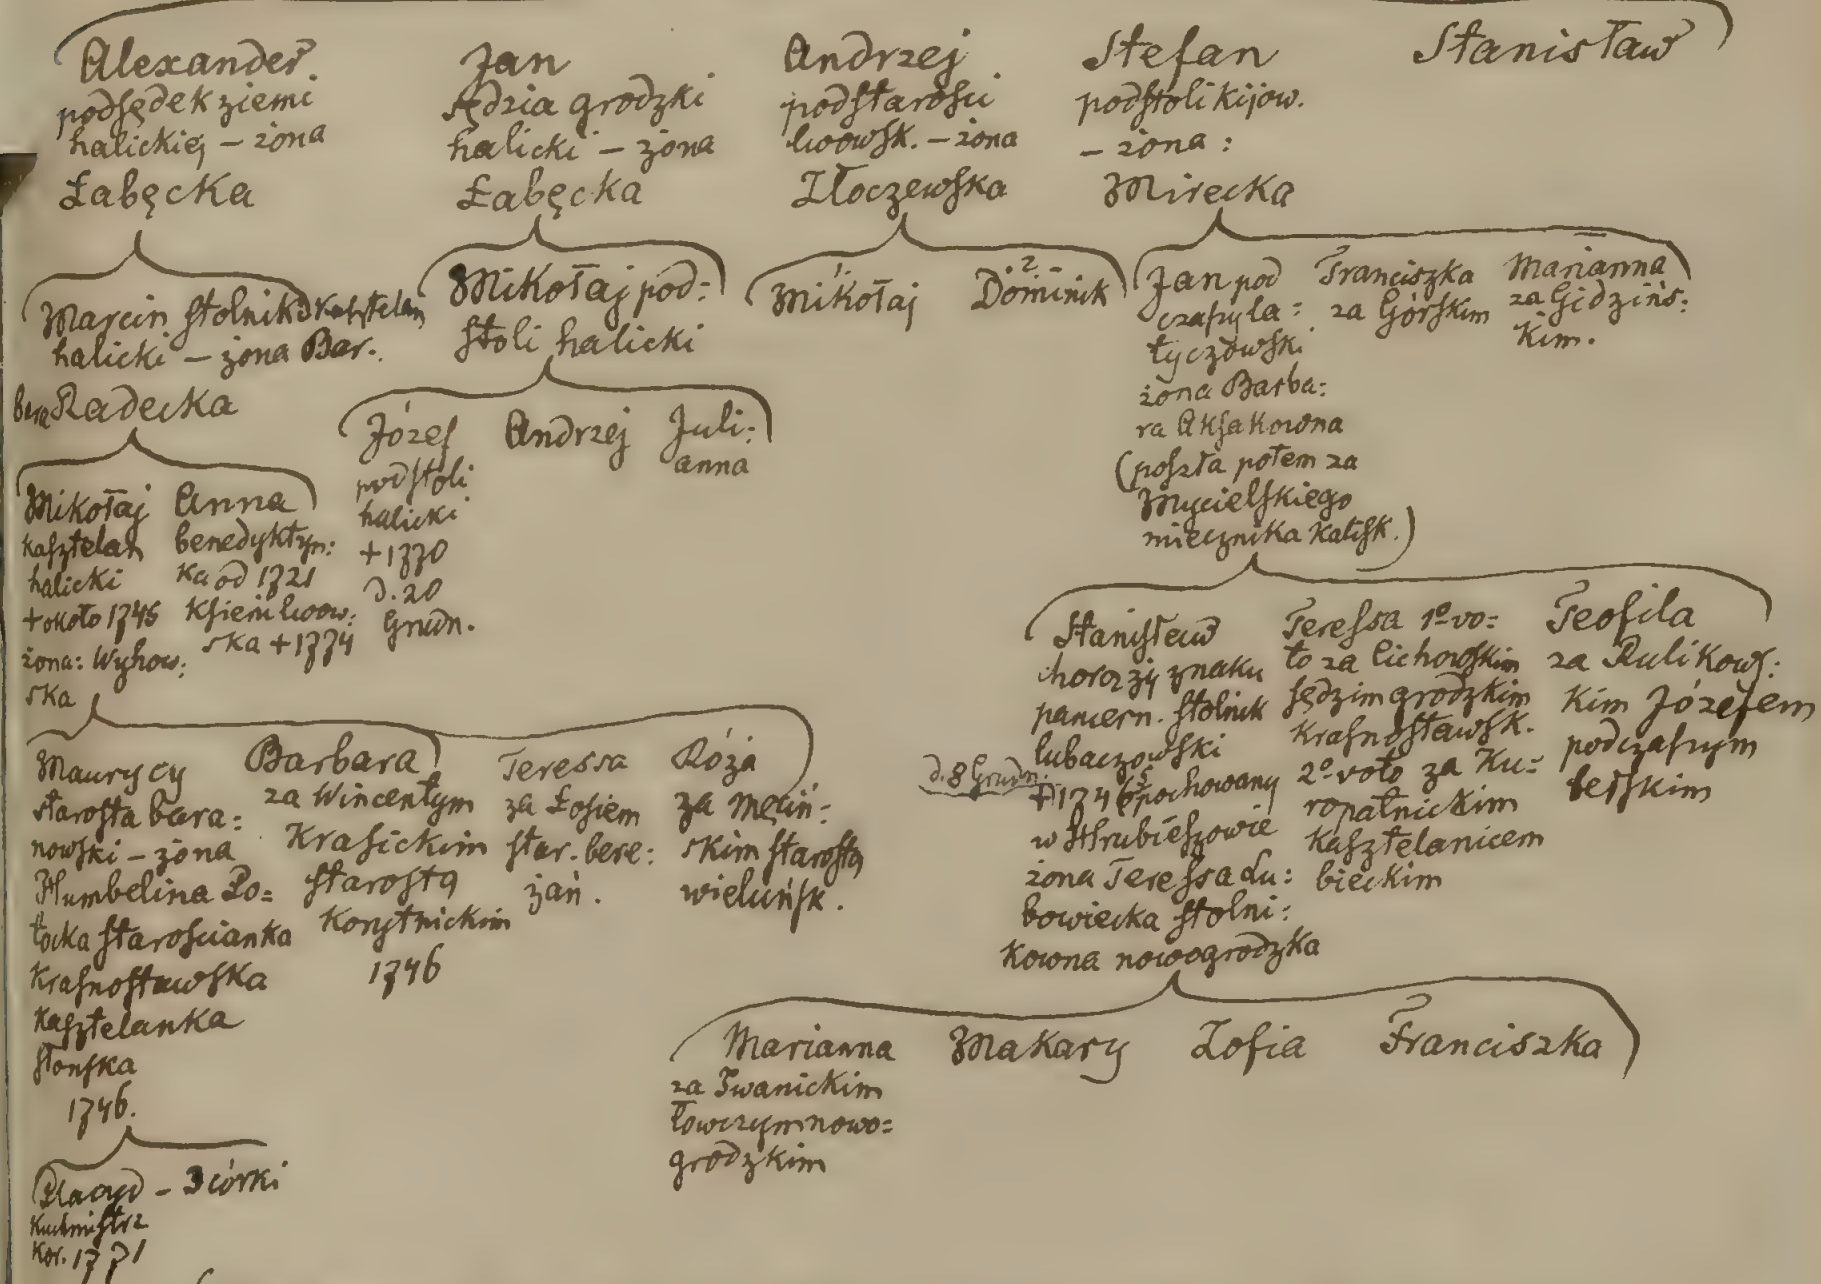 Alexander
podsędek ziemi
halickiej – żona
Łabęcka
Jan
sędzia grodzki
halicki – żona
Łabęcka
Andrzej
podstarości
lwowsk. – żona
Złoczewska
Stefan
podstoli kijow.
– żona :
Mirecka
Stanisław
Marcin stolnik kasztelan
halicki – żona Bar.
bara Radecka
Mikołaj pod:
stoli halicki
Mikołaj
Dominik
?
Jan pod
czaszy la:
tyczowski
żona Barba:
ra Aksakowna
(poszła potem za
Mycielskiego
miecznika Kalisk.)
Franciszka
za Górskim
Marianna
za Gidzińs:
kim.
Mikołaj
kasztelan
halicki
+ około 1745
żona: Wyhow:
ska
Anna
benedyktyn:
ka od 1721
Ksieni lwow:
ska + 1774
Józef
podstoli
halicki
+ 1770
d. 20
Grudn.
Andrzej
Juli:
anna
Stanisław
chorąży znaku
pancern. stolnik
lubaczowski
d. 8 Grudn.
+ 1746 pochowany
w Hrubieszowie
żona Teressa du:
bowiecka stolni:
kowna nowogrodzka
Teressa 1º vo:
to za Cichowskim
sędzim grodzkim
krasnostawsk.
2º voto za Ku:
ropatnickim
Kasztelanicem
bieckim
Teofila
za Rulikows:
kim Józefem
podczaszym
bełskim
Maurycy
starosta bara:
nowski – żona
Humbelina Po:
tocka starościanka
krasnostawska
kasztelanka
słonska
1746.
Barbara
za Wincentym
Krasickim
starostą
Korytnickim
1746
Teressa
za Łosiem
star. bere:
żań.
Róża
za Męciń:
skim starostą
wieluńsk.
Marianna
za Iwanickim
łowczym nowo:
grodzkim
Makary
Zofia
Franciszka
Placyd – 3 córki
Kuchmistrz
Kor. 1771